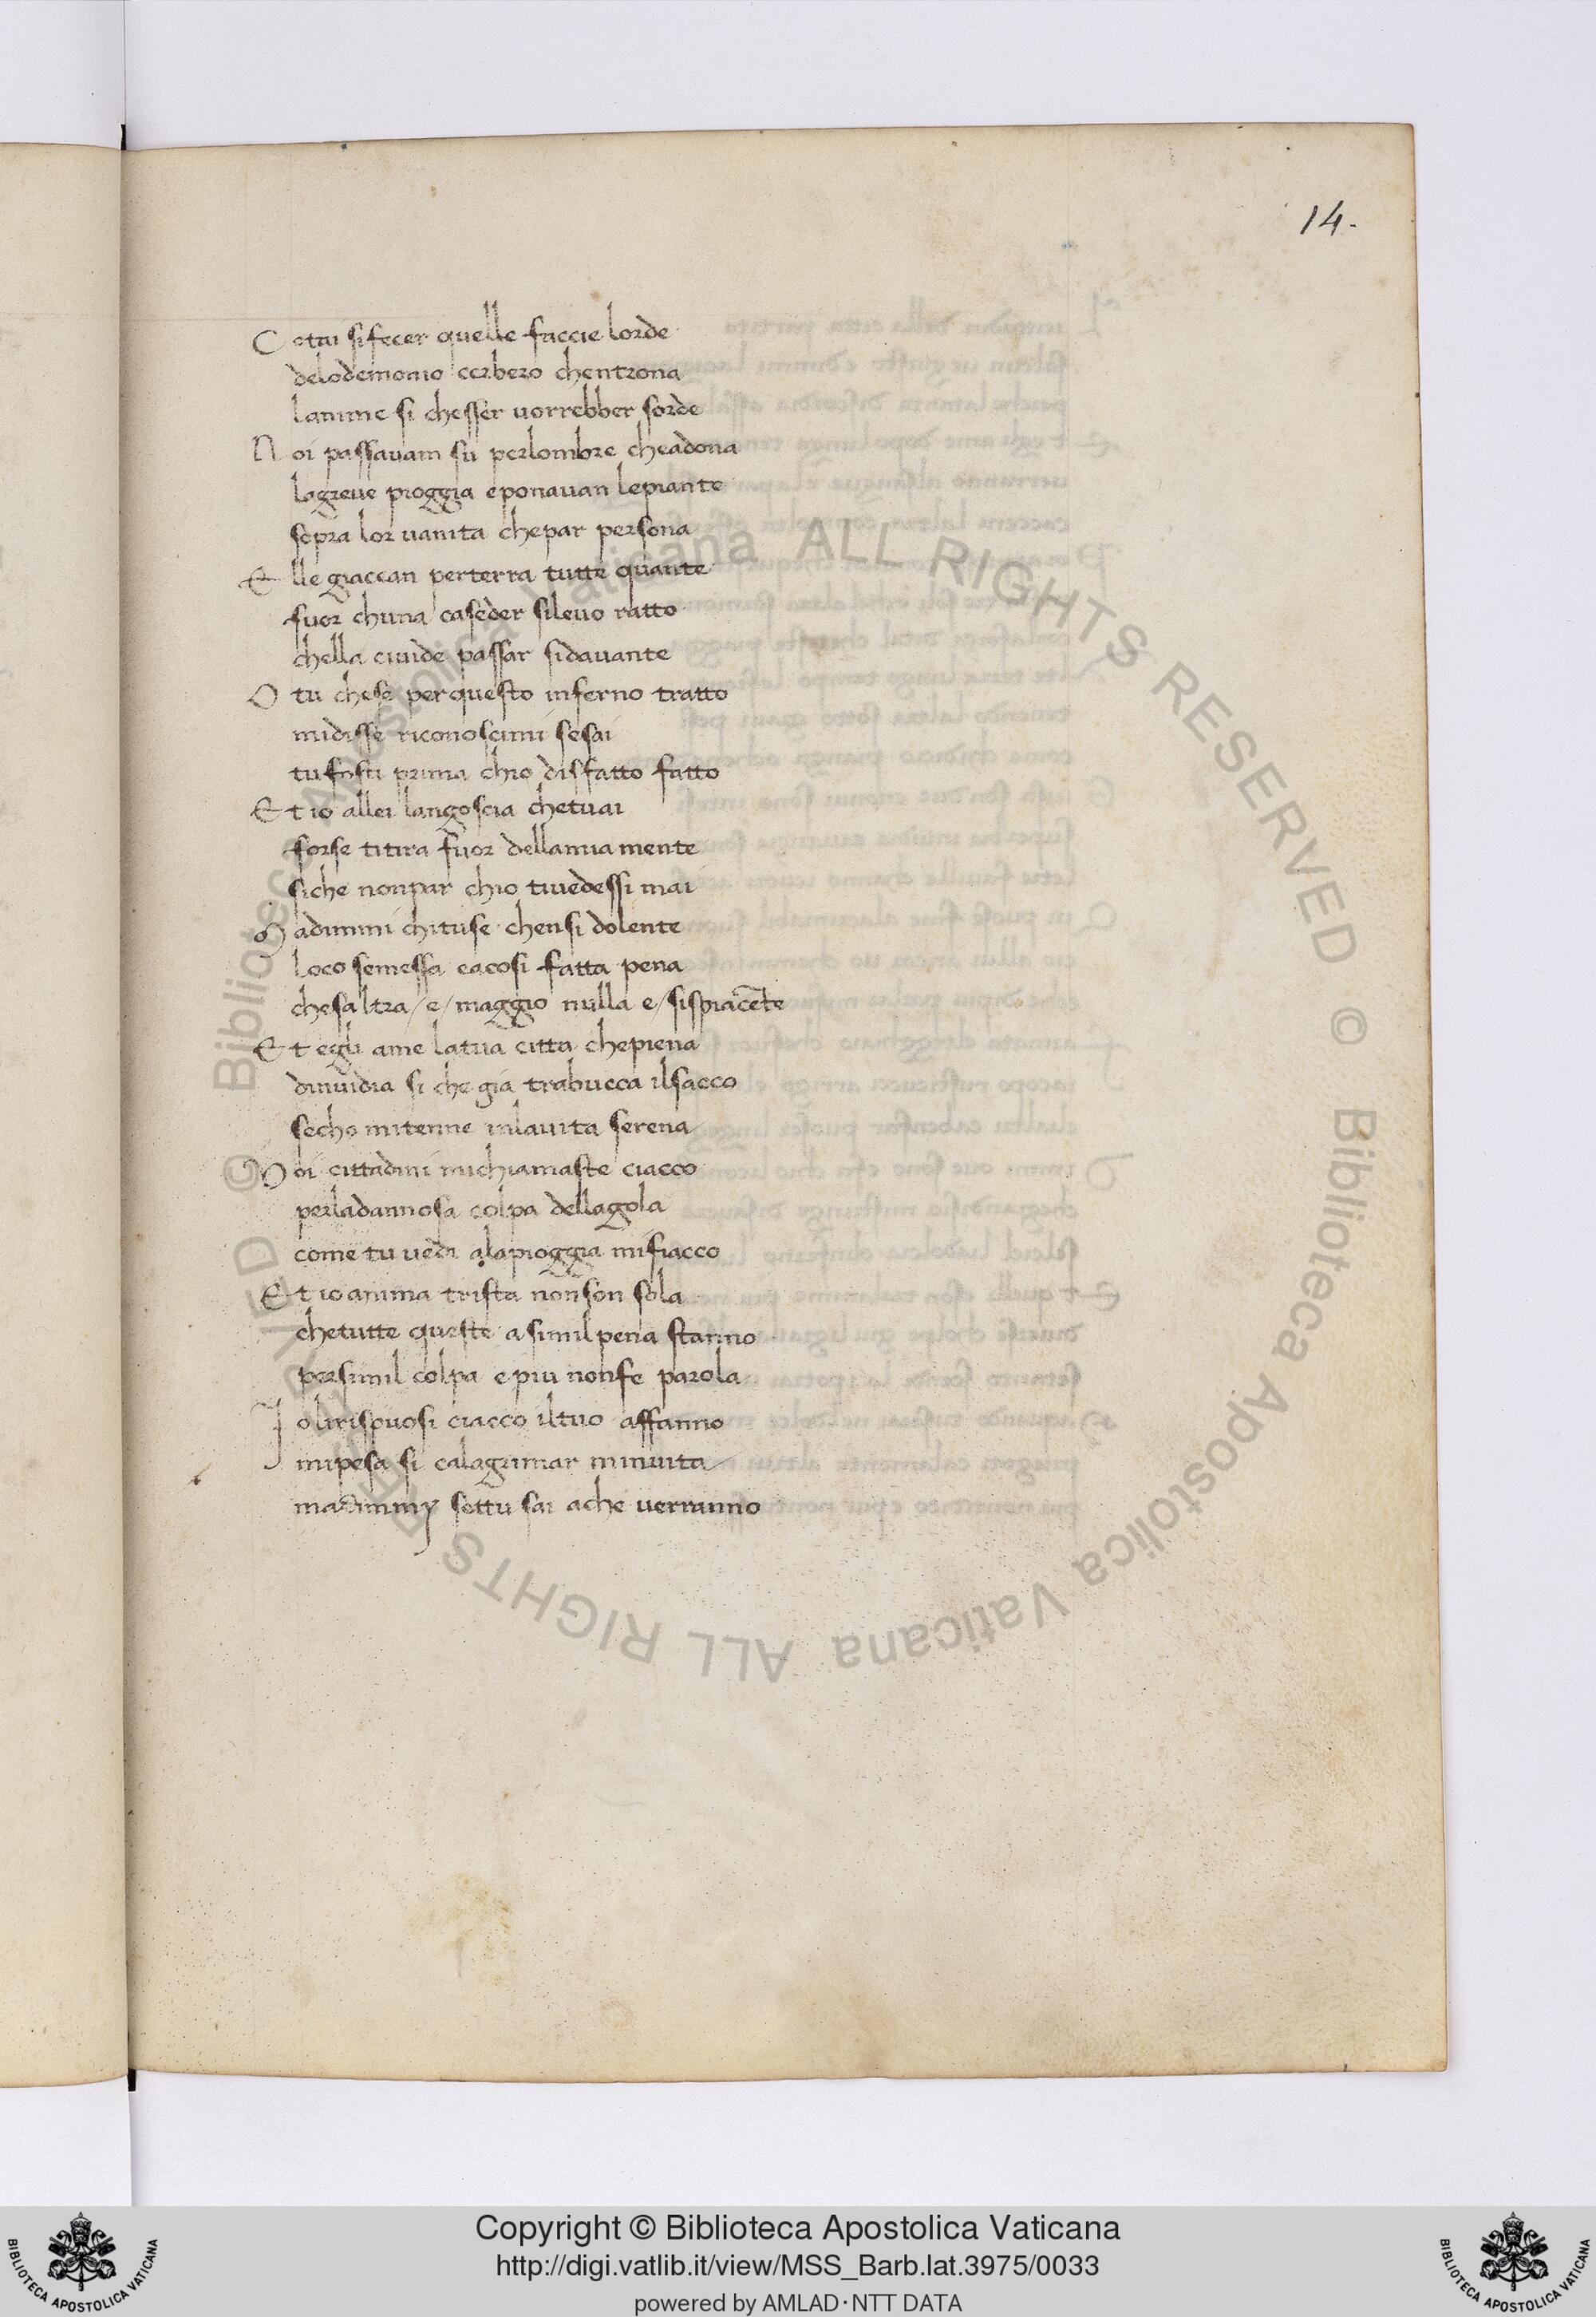 14.
C otai si fecer quelle faccie lorde
delodemonio cerbero chentrona
lanime si chesser uorrebber sorde
N oi passauam su perlombre cheadona
lagreue pioggia eponauan lepiante
sopra lor uanita chepar persona
E lle giaccan perterra tutte quante
fuor chuna caseder sileuo ratto
chella ciuide passar sidauante
O tu chese perquesto inferno tratto
midisse riconoscimi sesai
tu fosti prima chio disfatto fatto
E t io allei langoscia chetuai
forse titira fuor dellamia mente
siche nonpar chio tiuedessi mai
M adimmi chituse chensi dolente
loco semessa eacosi fatta pena
chesaltra/e/maggio nulla e/sispiacēte
E t egli ame latua citta chepiena
dinuidia si che gia trabucca ilsacco
secho mitenne inlauita serena
V oi cittadini michiamaste ciacco
perladannosa colpa dellagola
come tu uedi alapioggia mifiacco
E t io anima trista nonson sola
chetutte queste a simil pena stanno
persimil colpa e piu nonfe parola
I olirispuosi ciacco iltuo affanno
mipesa si calagrimar minuita
madimmy settu sai ache uerranno
© Biblioteca Apostolica Vaticana ALL RIGHTS RESERVED © Biblioteca Apostolica Vaticana ALL RIGHTS RESERVED
Copyright © Biblioteca Apostolica Vaticana
http://digi.vatlib.it/view/MSS_Barb.lat.3975/0033
powered by AMLAD·NTT DATA
BIBLIOTECA APOSTOLICA VATICANA
BIBLIOTECA APOSTOLICA VATICANA